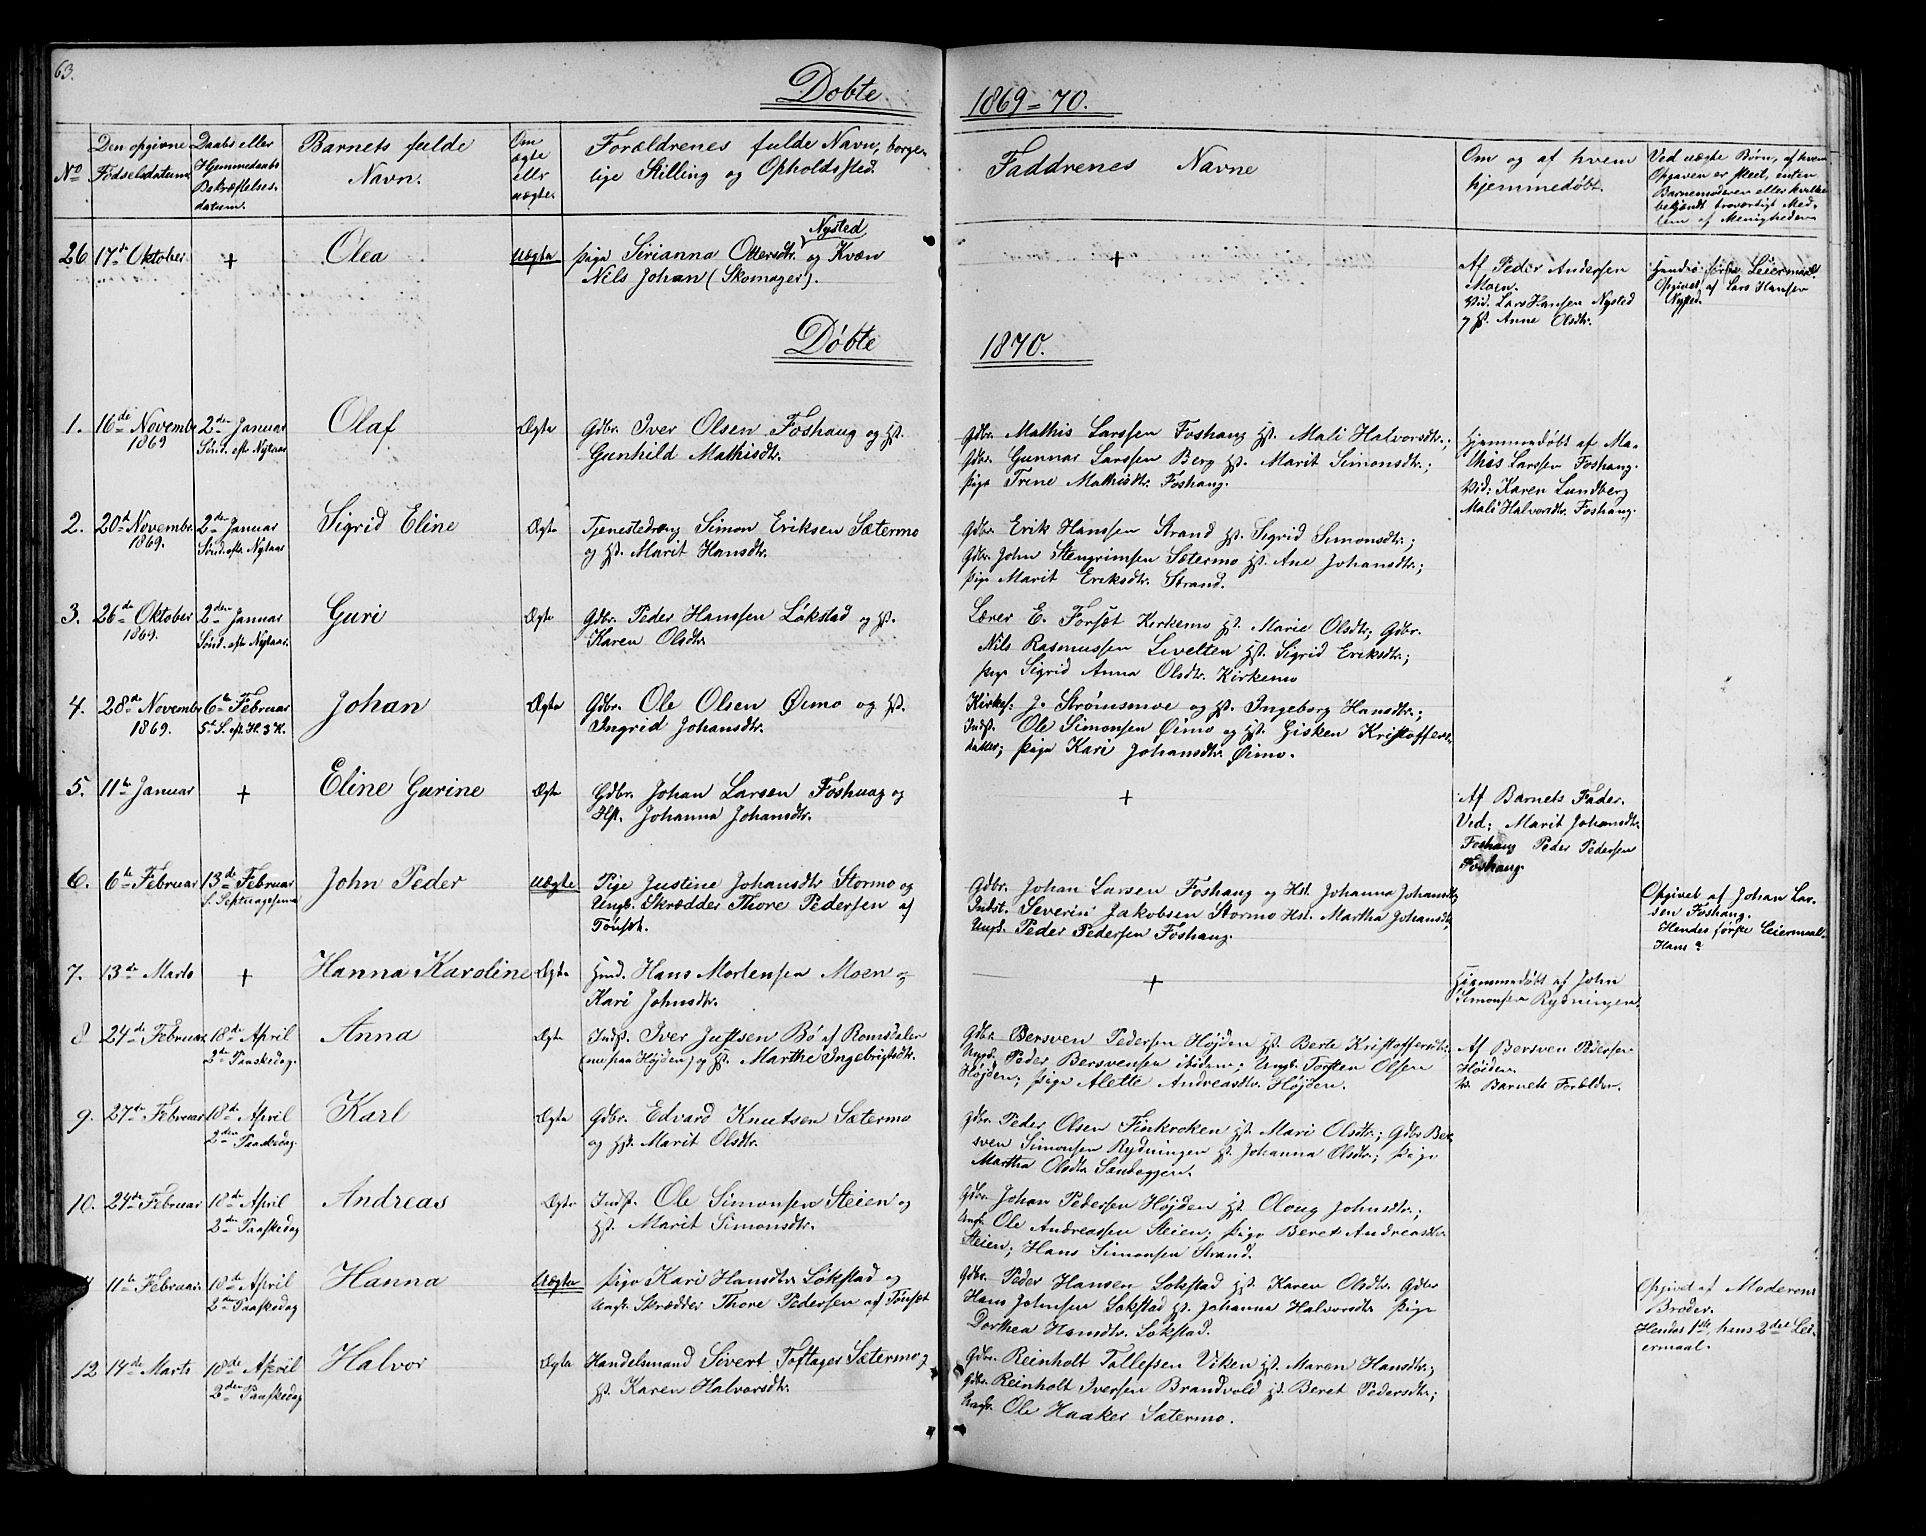 63.
Døbte 1869-70.
No
Den opgivne Fødselsdatum.
Daabs eller Hjemmedaabs Bekræftelses-datum.
Barnets fulde Navn.
Om ægte eller uægte.
Forældrenes fulde Navn, borger-
lige Stilling og Opholdssted.
Faddrenes Navne
Om og af hvem
hjemmedøbt.
Ved uægte Børn, af hvem
Opgaven er skeet, enten
Barnemoderen eller hvilke
bekjendt troværdigt Med-
lem af Menigheden
26 17de Oktober + Olea Uægte
Pige Sirianna Ottersdtr. Nysted og Kvæn
Nils Johan (Skomager).
+
Af Peder Andersen
Moen.
Vid. Lars Hansen Nysted
og H. Anne Olsdtr.
Hendes første Leiermaal.
Opgivet af Lars Hansen
Nysted.
Døbte 1870.
1. 16de Novembr 1869 2den Januar Sönd. eft. Nytaar Olaf Ægte
Gdbr. Iver Olsen Foshaug og H.
Gunhild Mathisdtr.
Gdbr. Mathis Larssen Foshaug H. Mali Halvorsdtr.;
Gdbr. Gunnar Larssen Berg H. Marit Simonsdtr.;
Pige Trine Mathisdtr. Foshaug.
Hjemmedøbt af Ma-
this Larssen Foshaug.
Vid: Karen Lundberg
Mali Halvorsdtr. Foshaug.
2. 20de Novembr. 1869. 2den Januar Sönd. eft. Nytaar Sigrid Eline Ægte
Tjenestedreng Simon Eriksen Sætermo
og H. Marit Hansdtr.
Gdbr. Erik Hanssen Strand H. Sigrid Simonsdtr.;
Gdbr. John Stengrimsen Sætermo H. Ane Johansdtr.;
Pige Marit Eriksdtr. Strand.
3. 26de Oktober 1869. 2den Januar Sönd. eft. Nytaar. Guri Ægte
Gdbr. Peder Hanssen Løkstad og H.
Karen Olsdtr.
Lærer E. Forsöt Kirkemo H. Marie Olsdtr; Gdbr.
Nils Rasmussen Levelten H. Sigrid Eriksdtr.;
Pige Sigrid Anna Olsdtr. Kirkemo
4. 28de Novembr 1869. 6te Februar 5te S. eft. H. 3 K. Johan Ægte
Gdbr. Ole Olsen Øimo og H.
Ingrid Johansdtr.
Kirkes: J. Strømsmoe og H. Ingeborg Hansdtr.;
Indst. Ole Simonsen Øimo og H. Gisken Kristoffers-
datter; Pige Kari Johansdtr. Øimo.
5. 11te Januar + Eline Gurine Ægte
Gdbr. Johan Larsen Foshaug og
Hst. Johanna Johansdtr.
+
Af Barnets Fader.
Ved: Marit Johansdtr.
Foshaug Peder Pedersen
Foshaug.
6. 6te Februar 13de Februar S. Septuagesima John Peder Uægte
Pige Justine Johansdtr Stormo og
Ungk. Skrædder Thore Pedersen af
Tönset.
Gdbr. Johan Larsen Foshaug og Hst. Johanna Johansdtr
Indst. Severin Jakobsen Stormo Hst. Martha Johansdtr,
Ungk. Peder Pedersen Foshaug.
Opgivet af Johan Lar-
sen Foshaug.
Hendes første Leiermaal-
Hans?
7. 13de Marts + Hanna Karoline Ægte
Hmd. Hans Mortensen Moen og
Kari Johnsdtr.
+
Hjemmedøbt af John
Simonsen Rydningen.
8 24de Februar 18de April 2den Paaskedag. Anna Ægte
Indst. Iver Justsen Bö af Romsdalen
(nu paa Højden) og H. Marthe Ingebrigtsdtr.
Gdbr. Bersven Pedersen Højden H. Berte Kristoffersdtr.
Ungk. Peder Bersvensen ibidem; Ungk. Torsten Olsen
Højden; Pige Alette Andreasdtr. Højden.
Af Bersven Pedersen
Højden.
V. Barnets Forældre.
9. 27de Februar 18de April 2den Paaskedag. Karl Ægte
Gdbr. Edvard Knutsen Sætermo
og H. Marit Olsdtr.
Gdbr. Peder Olsen Finkroken H. Mari Olsdtr.; Gdbr Ber
sven Simonsen Rydningen H. Johanna Olsdtr.; Pige
Martha Olsdtr Sandeggen.
10. 24de Februar 18de April 2den Paaskedag Andreas Ægte
Indst. Ole Simonsen Steien og
H. Marit Simonsdtr.
Gdbr. Johan Pedersen Højden H. Oloug Johnsdtr.;
Ungk. Ole Andreassen Steien; Pige Beret Andreasdtr
Steien; Hans Simonsen Strand.
11te Februar. 18de April 2den Paaskedag Hanna Uægte
Pige Kari Hansdtr. Løkstad og
Ungk. Skrædder Thore Pedersen af Tönset
Gdbr. Peder Hansen Løkstad H. Karen Olsdtr. Gdbr
Hans Johnsen Løkstad H. Johanna Halvorsdtr. Pige
Dorthea Hansdtr. Løkstad.
Opgivet af Moderens
Broder.
Hendes 1ste, hans 2det Lei-
ermaal.
12 14de Marts 18de April 2den Paaskedag Halvor Ægte
Handelsmand Sivert Toftager Sætermo og
H. Karen Halvorsdtr.
Gdbr. Reinholt Tollefsen Viken H. Maren Hansdtr.;
Gdbr. Reinholt Iversen Brandvold H. Beret Pedersdtr.;
Ungk. Ole Haaker Sætermo.